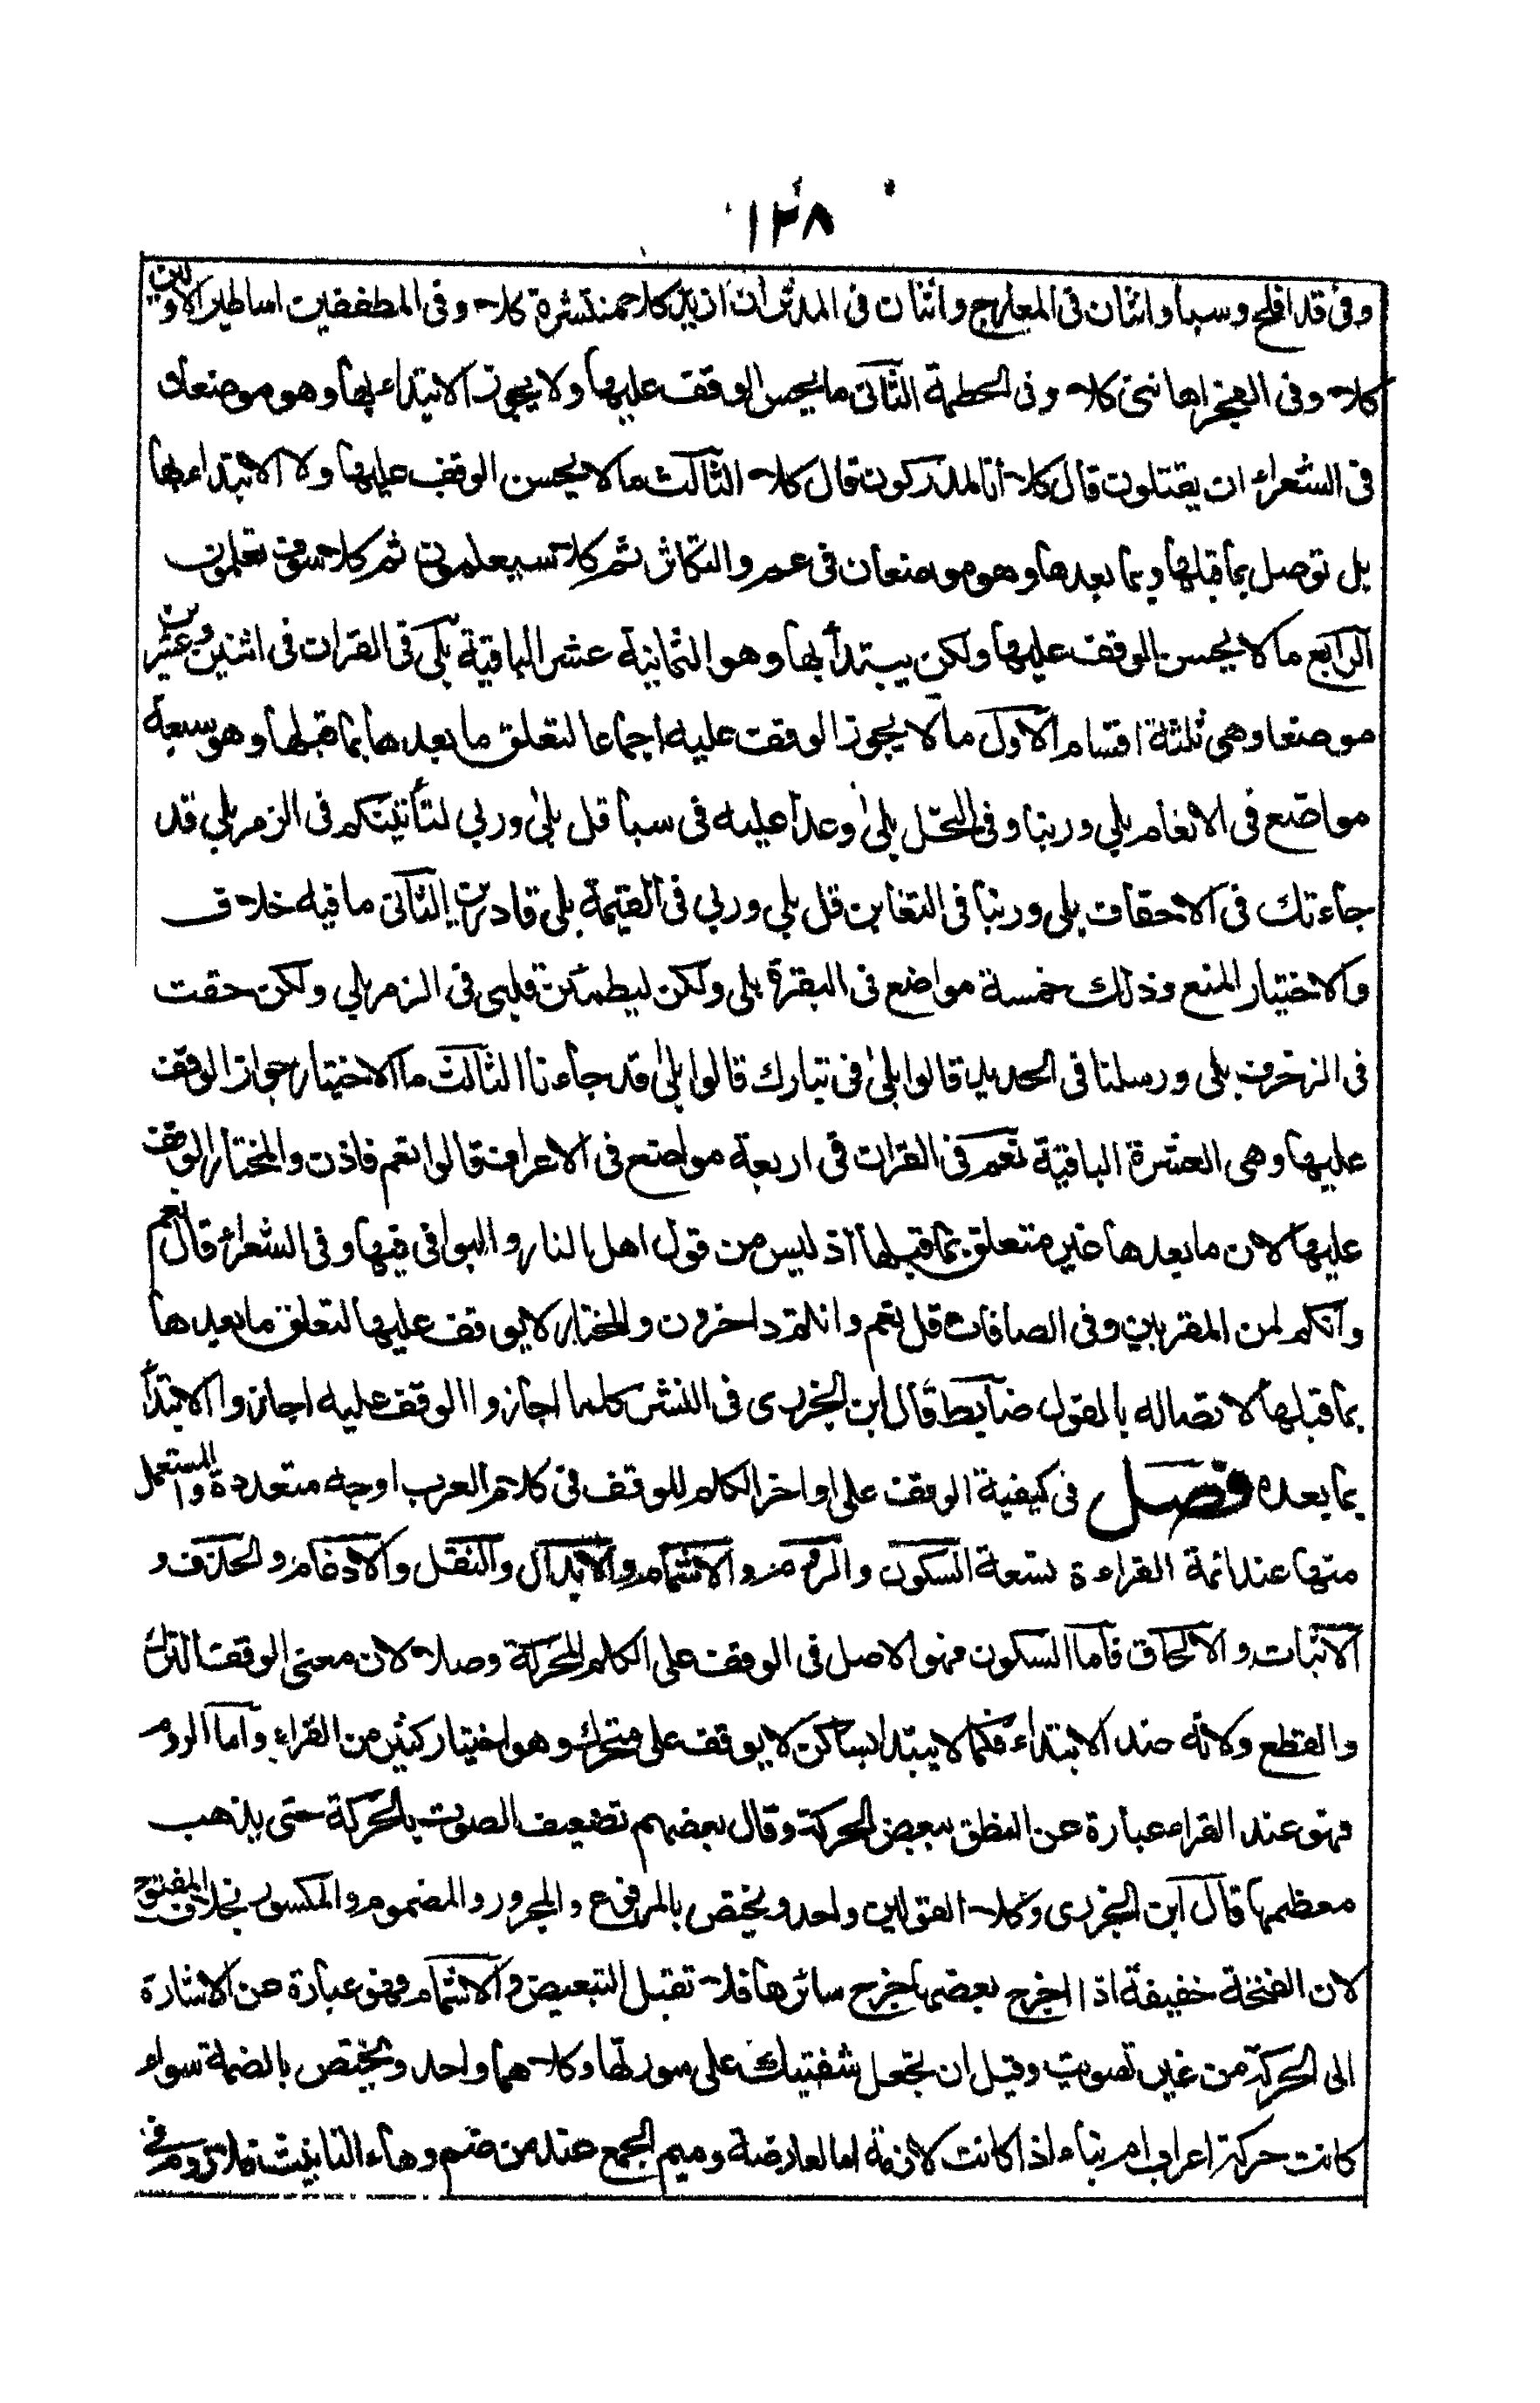 ١٢٨
وفى قد افلح وسبأ واثنان فى المعارج واثنان فى المدثر ان ازيد كلا منشرة كلا وفى المطففين اساطير الاولين
كلا وفى الفجر اهانن كلا وفى الحطمة الثانى ما يحسن الوقف عليها ولا يجوز الابتداء بها وهو موضعان
فى الشعراء ان يقتلون قال كلا انا لمدركون قال كلا الثالث ما لا يحسن الوقف عليها ولا الابتداء بها
بل توصل بما قبلها وبما بعدها وهو موضعان فى عم والتكاثر ثم كلا سيعلمون ثم كلا سوف تعلمون
الرابع ما لا يحسن الوقف عليها ولكن يبتدأ بها وهو الثمانية عشر الباقية بلى فى القران فى اثنين وعشرين
موضعا وهى ثلثة اقسام الاول ما لا يجوز الوقف عليه اجماعا لتعلق ما بعدها بما قبلها وهو سبعة
مواضع فى الانعام بلى وربنا وفى النحل بلى وعدا عليه فى سبأ قل بلى وربي لتأتينكم فى الزمر بلى قد
جاءتك فى الاحقاف بلى وربنا فى التغابن قل بلى وربي فى القيمة بلى قادرين الثانى ما فيه خلاف
والاختيار المنع وذلك خمسة مواضع فى البقرة بلى ولكن ليطمئن قلبى فى الزمر بلى ولكن حقت
فى الزخرف بلى ورسلنا فى الحديد قالوا بلى فى تبارك قالوا بلى قد جاءنا الثالث ما الاختيار جواز الوقف
عليها وهى العشرة الباقية نعم فى القران فى اربعة مواضع فى الاعراف قالوا نعم فاذن والمختار الوقف
عليها لان ما بعدها غير متعلق بما قبلها اذ ليس من قول اهل النار والبواقى فيها وفى الشعراء قال نعم
وانكم لمن المقربين وفى الصافات قل نعم وانتم داخرون والمختار لا يوقف عليها لتعلق ما بعدها
بما قبلها لاتصاله بالقول ضابط قال ابن الجزرى فى النشر كلما اجازوا الوقف عليه اجازوا الابتدأ
بما بعده فصل فى كيفية الوقف على اواخر الكلم للوقف فى كلام العرب اوجه متعددة والمستعمل
منها عند ائمة القراءة تسعة السكون والروم والاشمام والابدال والنقل والادغام والحذف و
الاثبات والالحاق فاما السكون فهو الاصل فى الوقف على الكلم المحركة وصلا لان معنى الوقف الترك
والقطع ولانه ضد الابتداء فكما لا يبتدا بساكن لا يوقف على متحرك وهو اختيار كثير من القراء واما الروم
فهو عند القراء عبارة عن النطق ببعض الحركة وقال بعضهم تضعيف الصوت بالحركة حتى يذهب
معظمها قال ابن الجزرى وكلا القولين واحد ويختص بالمرفوع والمجرور والمضموم والمكسور بخلاف المفتوح
لان الفتحة خفيفة اذا اخرج بعضها خرج سائرها فلا تقبل التبعيض والاشمام فهو عبارة عن الاشارة
الى الحركة من غير تصويت وقيل ان تجعل شفتيك على صورتها وكلاهما واحد ويختص بالضمة سواء
كانت حركة اعراب ام بناء اذا كانت لازمة اما العارضة وميم الجمع عند من ضم وهاء التانيث فلا روم فى